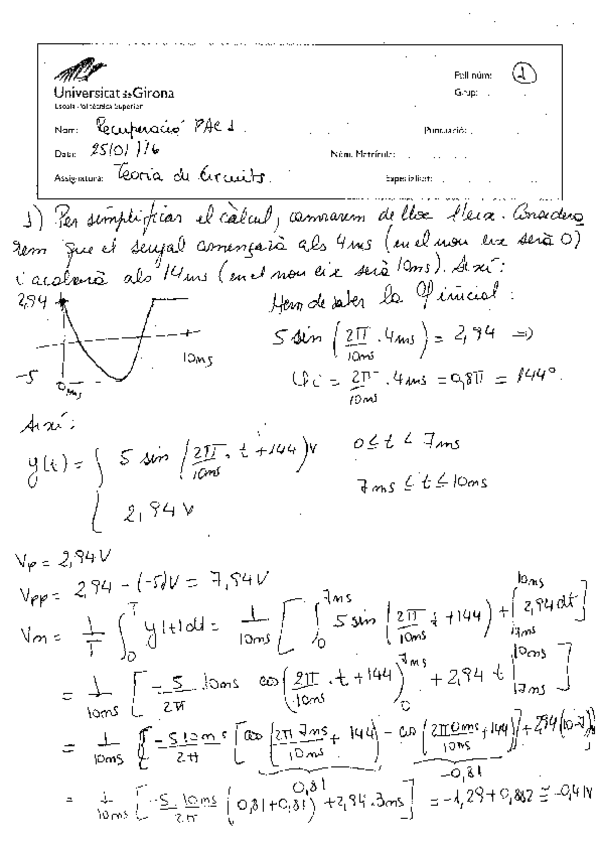 Universitat de Girona
Escola Politècnica Superior
Full núm: 1
Grup:
Nom: Recuperació PAC 1
Puntuació:
Data: 25/01/16
Núm. Matrícula:
Assignatura: Teoria de Circuits.
Especialitat:
1) Per simplificar el càlcul, canviarem de lloc l'eix. Considera
rem que el senyal començarà als 4ms (en el nou eix serà 0)
i acabarà als 14ms (en el nou eix serà 10ms). Així:
2,94
-5
0ms
10ms
Hem de saber la φ inicial:
5 sin (2π/10ms · 4ms) = 2,94 ⇒
φi = 2π/10ms · 4ms = 0,8π = 144°.
Així:
y(t) = { 5 sin (2π/10ms · t + 144) V 0 ≤ t < 7ms
2,94 V 7ms ≤ t ≤ 10ms
Vp = 2,94V
Vpp = 2,94 - (-5)V = 7,94V
Vm = 1/T ∫₀ᵀ y(t)dt = 1/10ms [ ∫₀^7ms 5 sin (2π/10ms t + 144) + ∫_7ms^10ms 2,94 dt ]
= 1/10ms [ -5/2π · 10ms cos (2π/10ms · t + 144)₀^7ms + 2,94 t |_7ms^10ms ]
= 1/10ms [ -5 10ms/2π [cos (2π 7ms/10ms + 144) - cos (2π 0ms/10ms + 144)] + 2,94 (10-7) ]
0,81
-0,81
= 1/10ms [ -5 10ms/2π (0,81 + 0,81) + 2,94 · 3ms ] = -1,29 + 0,882 ≅ -0,41V